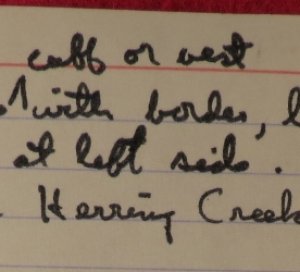 cuff or vest
with border, b
at left side.
Herring Creek